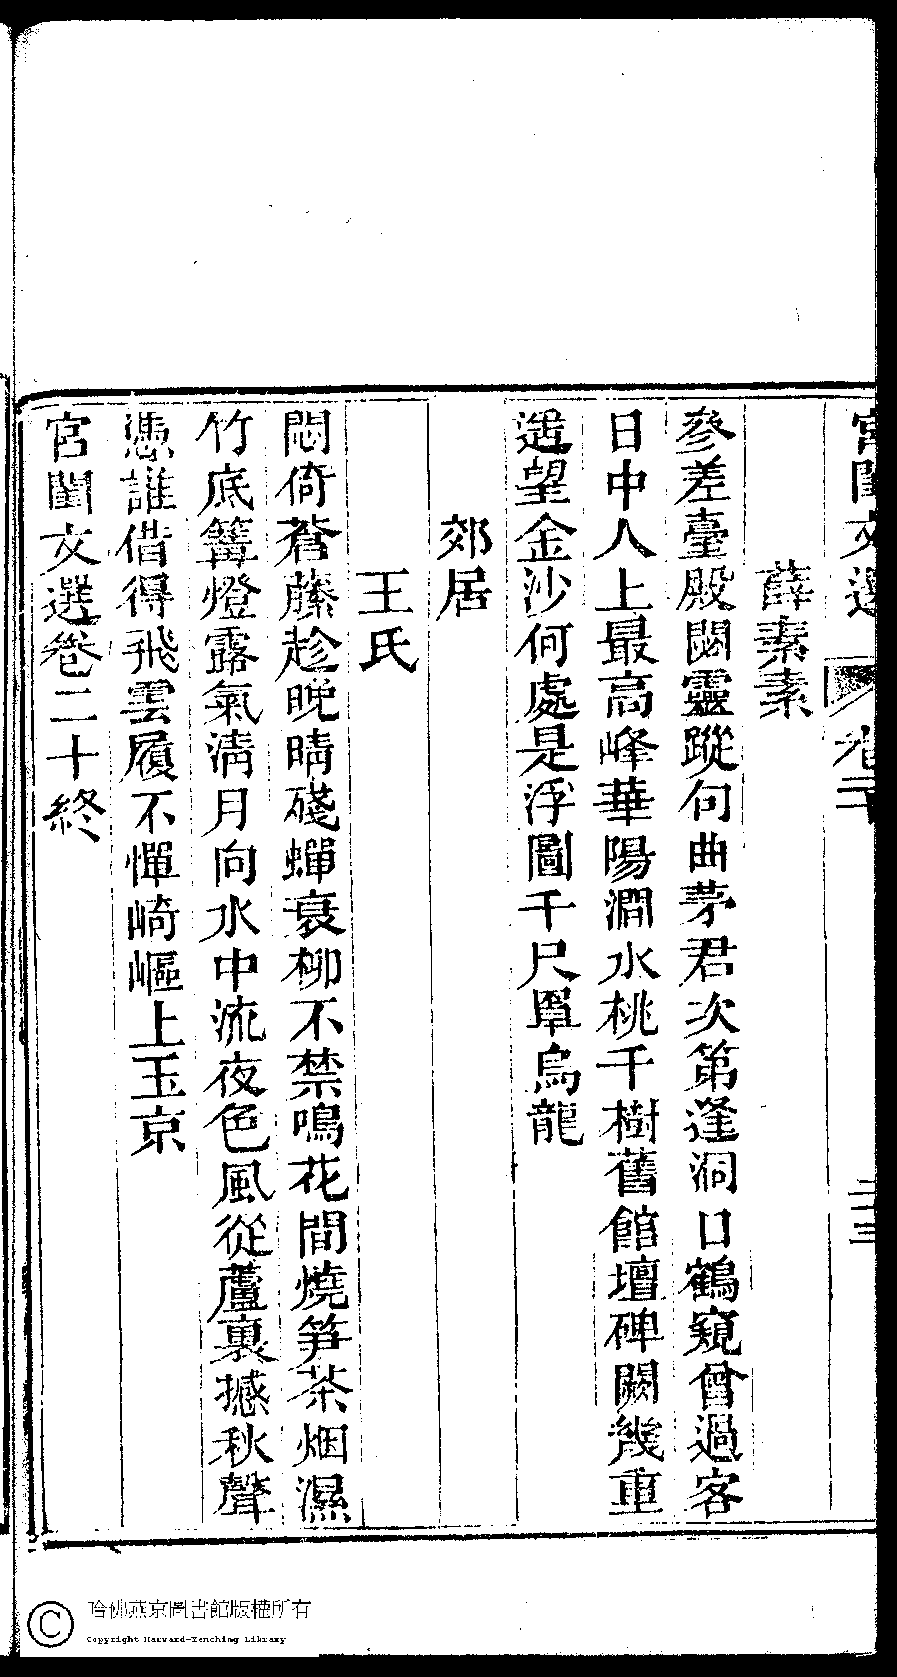 宮閨文選 卷二十 二十三
薛素素
參差臺殿閟靈蹤句曲茅君次第逢洞口鶴窺曾過客
日中人上最高峰華陽澗水桃千樹舊館壇碑闕幾重
遥望金沙何處是浮圖千尺單烏龍
郊居
王氏
悶倚蒼藤趁晚晴殘蟬衰柳不禁鳴花間燒笋茶烟濕
竹底篝燈露氣清月向水中流夜色風從蘆裏撼秋聲
憑誰借得飛雲履不憚崎嶇上玉京
宮閨文選卷二十終
哈佛燕京圖書館版權所有
Copyright Harvard-Yenching Library